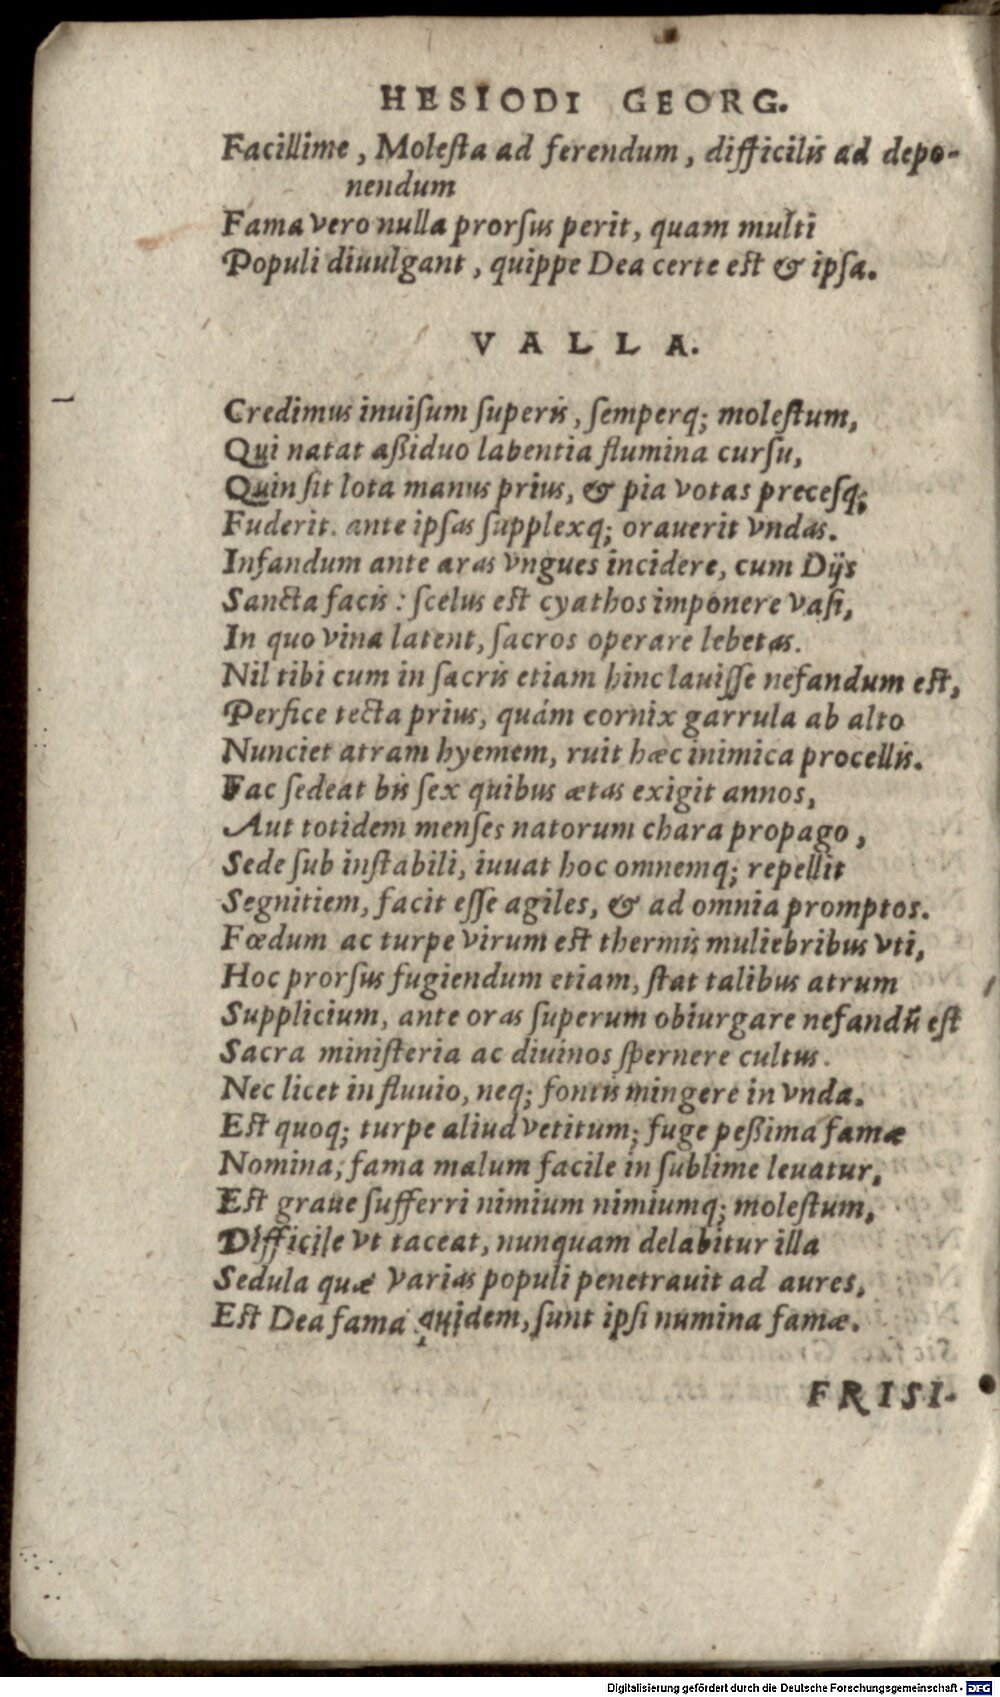 HESIODI GEORG.
Facillime, Molesta ad ferendum, difficilis ad depo-
nendum
Fama vero nulla prorſus perit, quam multi
Populi diuulgant, quippe Dea certe est & ipſa.
VALLA.
Credimus inuiſum ſuperis, ſemperq; moleſtum,
Qui natat aßiduo labentia flumina curſu,
Quin ſit lota manus prius, & pia votas preceſq;
Fuderit. ante ipſas ſupplexq; orauerit vndas.
Infandum ante aras vngues incidere, cum Dijs
Sancta facis: ſcelus est cyathos imponere vaſi,
In quo vina latent, ſacros operare lebetas.
Nil tibi cum in ſacris etiam hinc lauiſſe nefandum est,
Perfice tecta prius, quám cornix garrula ab alto
Nunciet atram hyemem, ruit hæc inimica procellis.
Fac ſedeat bis ſex quibus ætas exigit annos,
Aut totidem menſes natorum chara propago,
Sede ſub inſtabili, iuuat hoc omnemq; repellit
Segnitiem, facit eſſe agiles, & ad omnia promptos.
Fœdum ac turpe virum est thermis muliebribus vti,
Hoc prorſus fugiendum etiam, ſtat talibus atrum
Supplicium, ante oras ſuperum obiurgare nefandū eſt
Sacra miniſteria ac diuinos ſpernere cultus.
Nec licet in fluuio, neq; fontis mingere in vnda.
Est quoq; turpe aliud vetitum; fuge peßima famæ
Nomina, fama malum facile in ſublime leuatur,
Est graue ſufferri nimium nimiumq; moleſtum,
Difficile vt taceat, nunquam delabitur illa
Sedula quæ varias populi penetrauit ad aures,
Est Dea fama quidem, ſunt ipſi numina famæ.
FRISI-
Digitalisierung gefördert durch die Deutsche Forschungsgemeinschaft - DFG